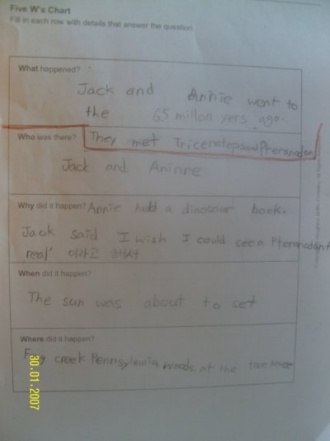 Five W's Chart
Fill in each row with details that answer the question.
What happened?
Jack and Annie went to
the 65 millon yers ago
Who was there? They met Triceratops and Pteranodon
Jack and Aninne
Why did it happen? Annie hold a dinosaur book.
Jack said I wish I could see a Pteranodon
real"
When did it happen?
The sun was about to set
Where did it happen?
creek Pennsylvania woods at the tree house
30.01.2007